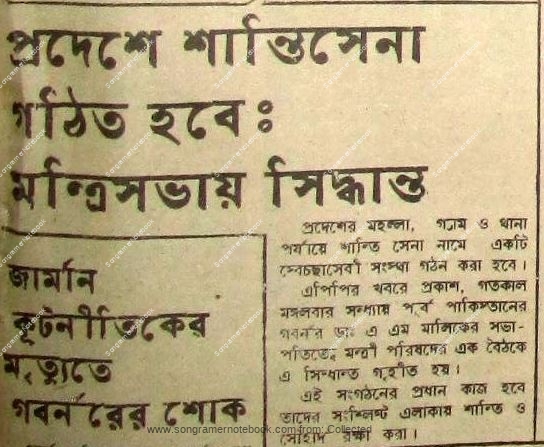 প্রদেশে শান্তিসেনা
গঠিত হবে:
মন্ত্রিসভায় সিদ্ধান্ত
জার্মান
কূটনীতিকের
মৃত্যুতে
গবর্নরের শোক
প্রদেশের মহল্লা, গ্রাম ও থানা
পর্যায়ে শান্তি সেনা নামে একটি
স্বেচ্ছাসেবী সংস্থা গঠন করা হবে।
এপিপির খবরে প্রকাশ, গতকাল
মঙ্গলবার সন্ধ্যায় পূর্ব পাকিস্তানের
গবর্নর ডাঃ এ এম মালিকের সভা-
পতিত্বে মন্ত্রী পরিষদের এক বৈঠকে
এ সিদ্ধান্ত গৃহীত হয়।
এই সংগঠনের প্রধান কাজ হবে
তাদের সংশ্লিষ্ট এলাকায় শান্তি ও
সৌহার্দ রক্ষা করা।
www.songramernotebook.com from: Collected